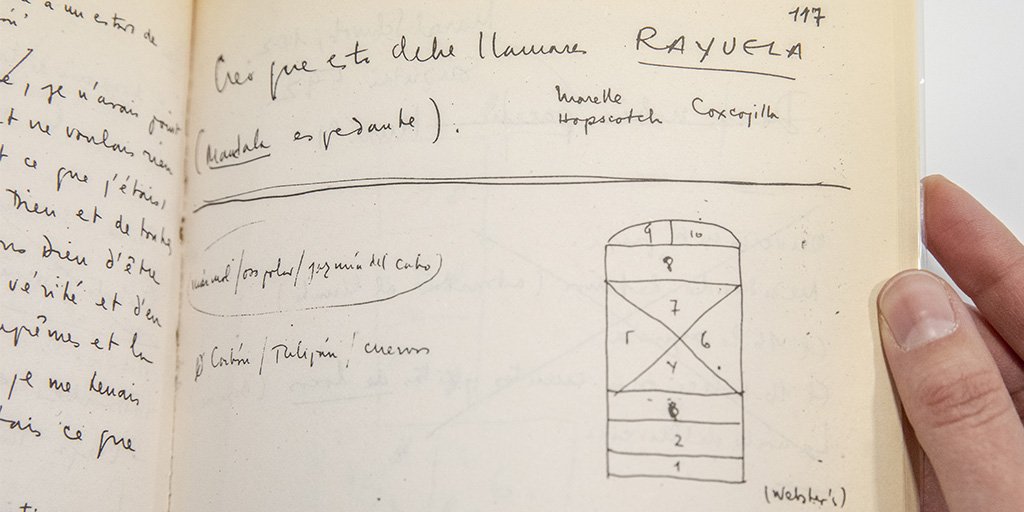 a un estars de
n'avais point
et ne voulais rien
t ce que j'étais,
Dieu et de toutes
ns Dieu d'être
vérité et d'en
uprêmes et la
je me tenais
tais ce que
117
Creo que esto debe llamarse RAYUELA
(Mandala es pedante).
Marelle
Hopscotch
Coxcojilla
/oso polar/jazmín del cabo
Carbón / Tulipán / cuervos
9 10
8
7
5 6
4
3
2
1
(Webster's)